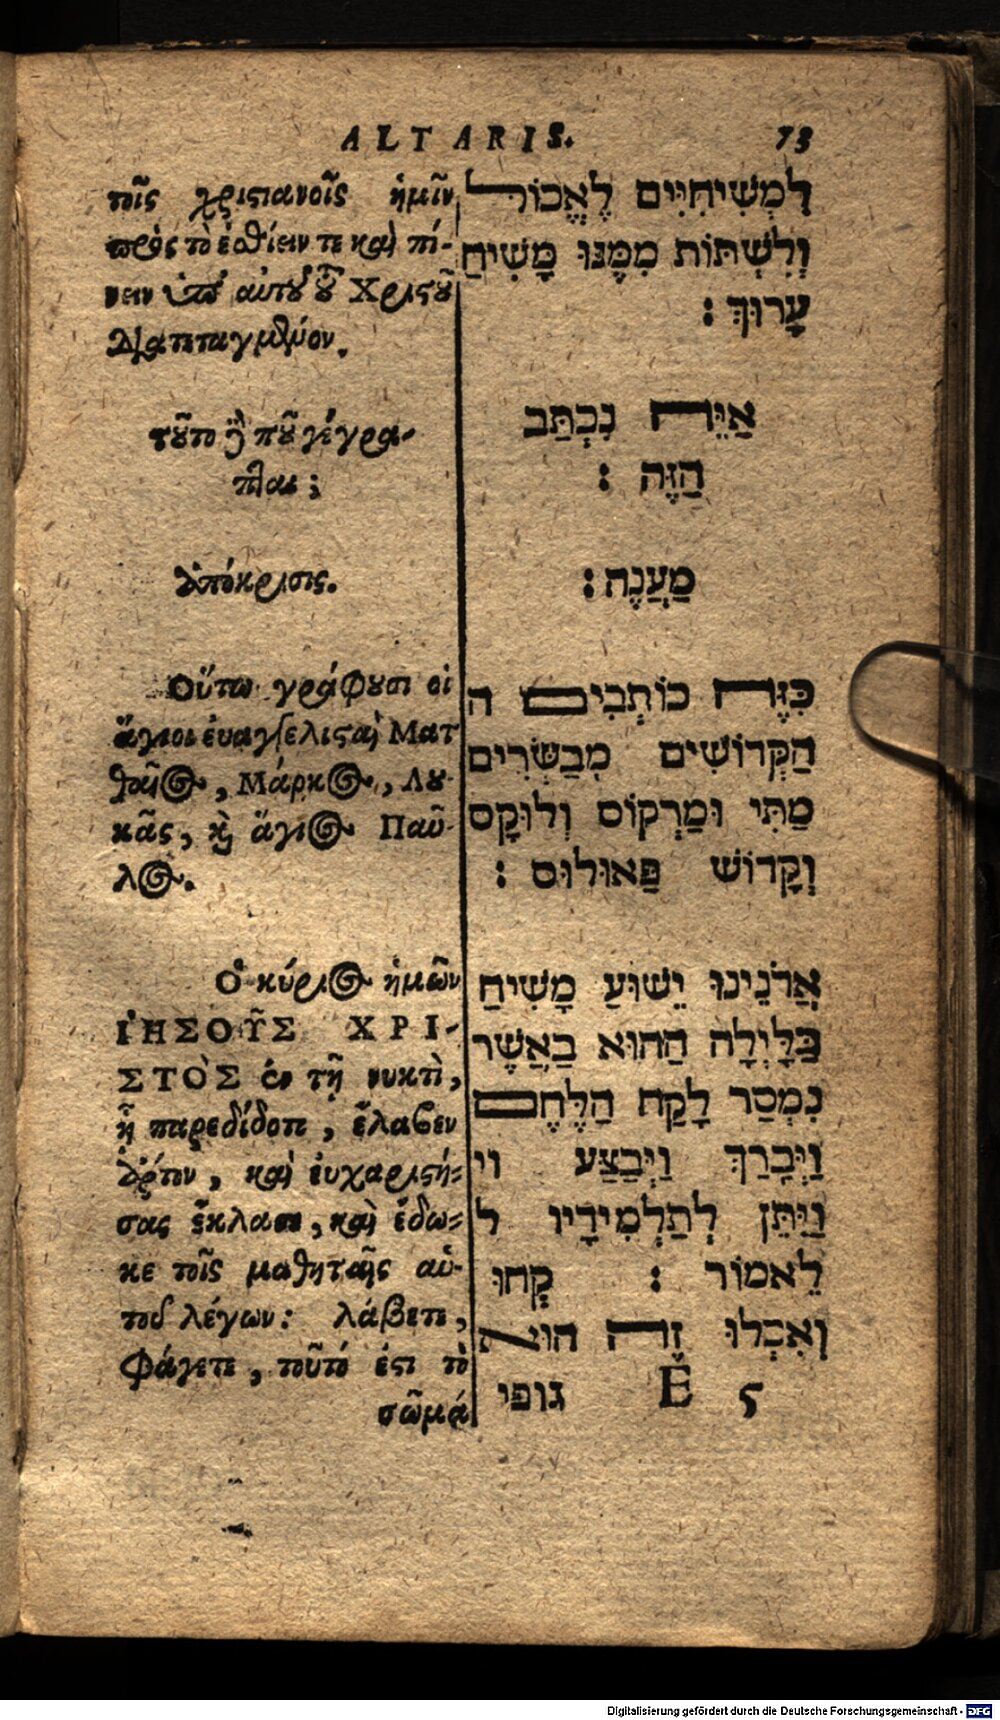 ALTARIS. 73
τοῖς χριστιανοῖς ἡμῖν
πρὸς τὸ ἐσθίειν τε καὶ πί-
νειν ὑπὸ αὐτοῦ τοῦ Χριστοῦ
διατεταγμένον.
τοῦτο δὲ ποῦ γέγρα-
πται;
ἀπόκρισις.
Οὕτω γράφουσι οἱ
ἅγιοι ἐυαγγελισταὶ Ματ
θαῖος, Μάρκος, Λου-
κᾶς, καὶ ἅγιος Παῦ-
λος.
Ὁ κύριος ἡμῶν
ἸΗΣΟΥ͂Σ ΧΡΙ-
ΣΤῸΣ ἐν τῇ νυκτὶ,
ᾗ παρεδίδοτο, ἔλαβεν
ἄρτον, καὶ ἐυχαριστή-
σας ἔκλασε, καὶ ἔδω-
κε τοῖς μαθηταῖς αὐ-
τοῦ λέγων: λάβετε,
Φάγετε, τοῦτό ἐστι τὸ
σῶμά
לַמְּשִׁיחִיִּים לֶאֱכוֹל
וְלִשְׁתּוֹת מִמֶּנּוּ מָשִׁיחַ
עָרוּךְ׃
אַיֵּה נִכְתַּב
הַזֶּה׃
מַעֲנֶה׃
כַּזֶּה כּוֹתְבִים ה
הַקְּדוֹשִׁים מְבַשְּׂרִים
מַתִּי וּמַרְקוֹס וְלוּקָס
וְקָדוֹשׁ פַּאוּלוּס׃
אֲדֹנֵינוּ יֵשׁוּעַ מָשִׁיחַ
בַּלַּיְלָה הַהוּא בַאֲשֶׁר
נִמְסַר לָקַח הַלֶּחֶם
וַיְּבָרַךְ וַיְּבַצַּע וי
וַיִּתֵּן לְתַלְמִידָיו ל
לֵאמוֹר׃ קְחוּ
וְאִכְלוּ זֶה הוּא
E 5 גופי